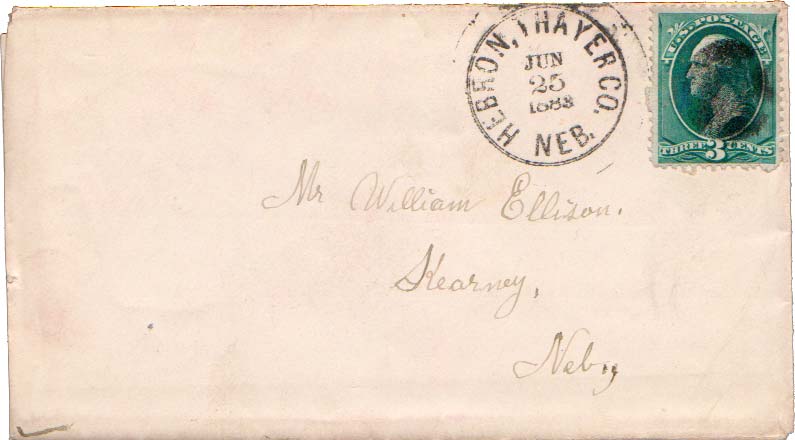 HEBRON, THAYER CO.
JUN
25
1883
NEB.
U.S. POSTAGE
THREE 3 CENTS
Mr William Ellison.
Kearney,
Neb,